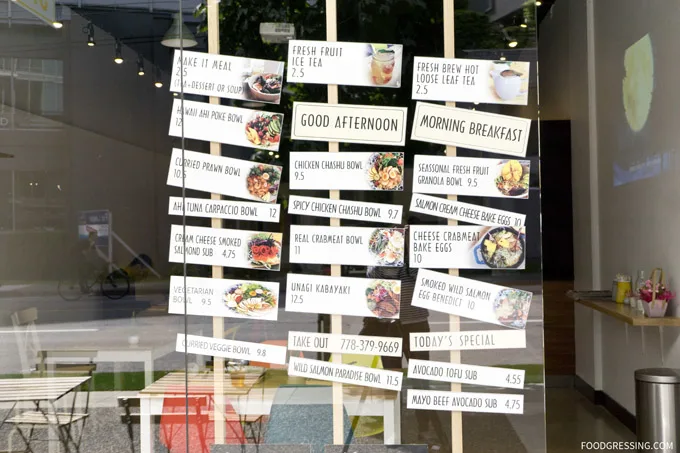 MAKE IT MEAL
2.5
TEA+DESSERT OR SOUP
HAWAII AHI POKE BOWL
12
CURRIED PRAWN BOWL
10.5
AHI TUNA CARPACCIO BOWL 12
CREAM CHEESE SMOKED
SALMOND SUB 4.75
VEGETARIAN
BOWL 9.5
CURRIED VEGGIE BOWL 9.8
FRESH FRUIT
ICE TEA
2.5
GOOD AFTERNOON
CHICKEN CHASHU BOWL
9.5
SPICY CHICKEN CHASHU BOWL 9.7
REAL CRABMEAT BOWL
11
UNAGI KABAYAKI
12.5
TAKE OUT 778-379-9669
WILD SALMON PARADISE BOWL 11.5
FRESH BREW HOT
LOOSE LEAF TEA
2.5
MORNING BREAKFAST
SEASONAL FRESH FRUIT
GRANOLA BOWL 9.5
SALMON CREAM CHEESE BAKE EGGS 10
CHEESE CRABMEAT
BAKE EGGS
10
SMOKED WILD SALMON
EGG BENEDICT 10
TODAY'S SPECIAL
AVOCADO TOFU SUB 4.55
MAYO BEEF AVOCADO SUB 4.75
FOODGRESSING.COM